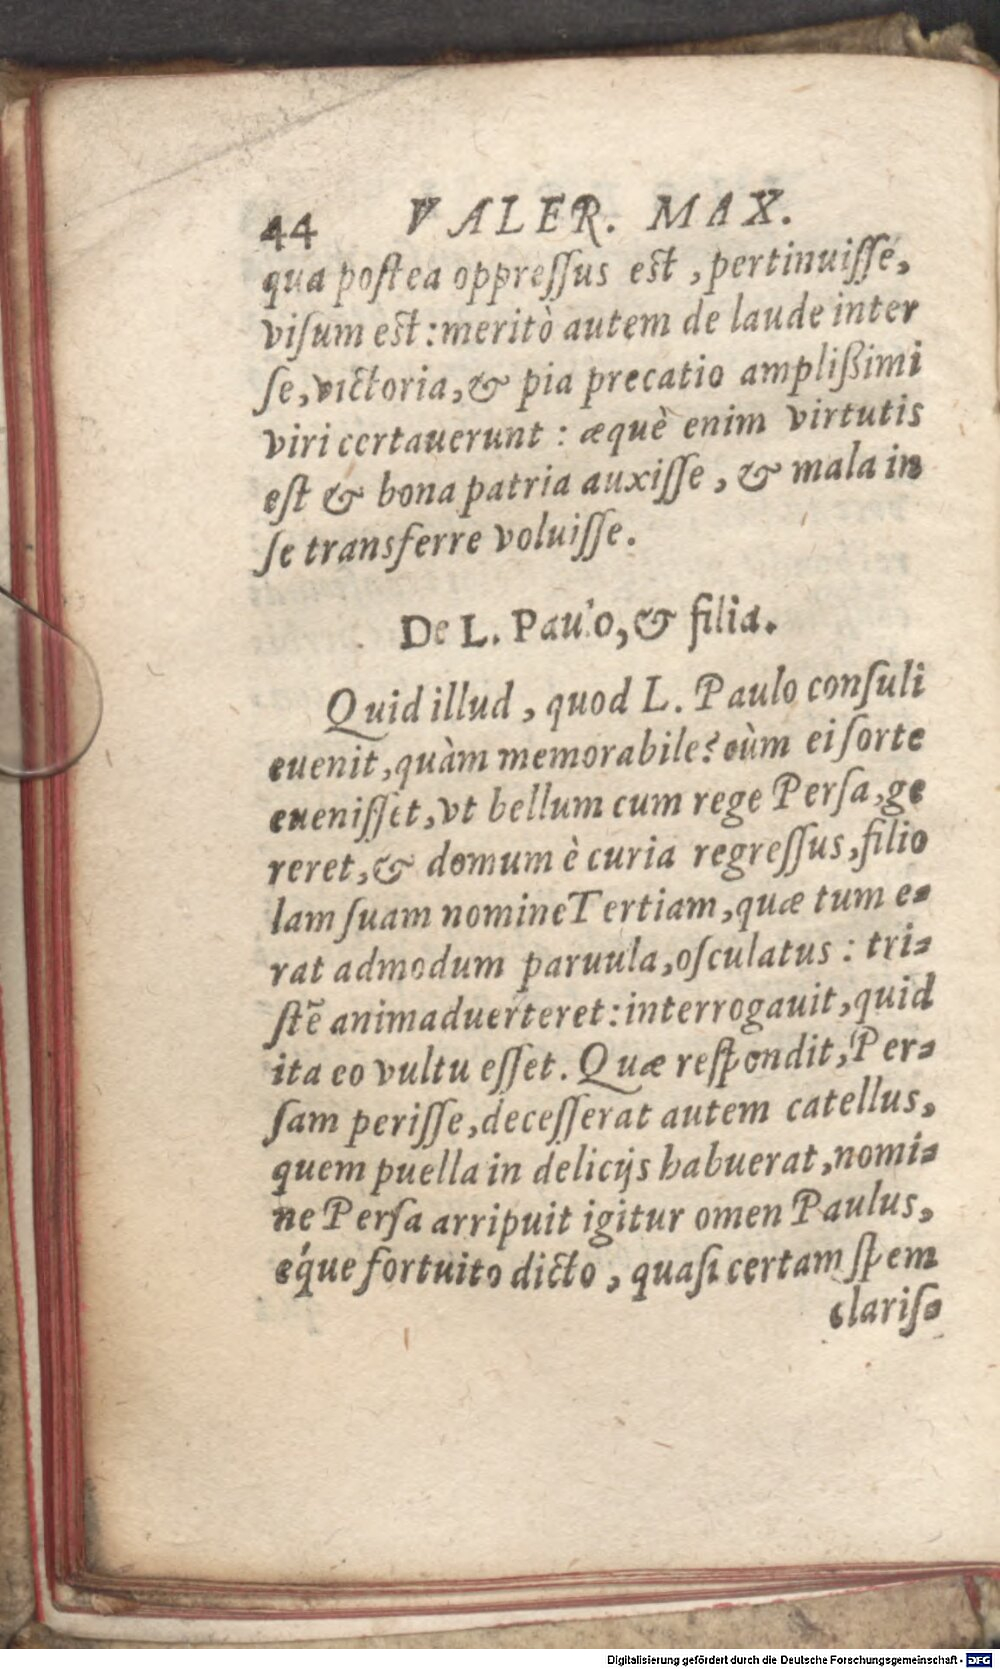 44 VALER. MAX.
qua poſtea oppreſſus est, pertinuiſſe,
viſum est: meritò autem de laude inter
ſe, victoria, & pia precatio amplißimi
viri certauerunt: æquè enim virtutis
eſt & bona patria auxiſſe, & mala in
ſe transferre voluiſſe.
De L. Paulo, & filia.
Quid illud, quod L. Paulo conſuli
euenit, quàm memorabile? cùm ei ſorte
eueniſſet, vt bellum cum rege Perſa, ge
reret, & domum è curia regreſſus, filio
lam ſuam nomine Tertiam, quæ tum e-
rat admodum paruula, oſculatus: tri-
ſtē animaduerteret: interrogauit, quid
ita eo vultu eſſet. Quæ reſpondit, Per-
ſam periſſe, deceſſerat autem catellus,
quem puella in delicijs habuerat, nomi-
ne Perſa arripuit igitur omen Paulus,
éque fortuito dicto, quaſi certam ſpem
clariſ-
Digitalisierung gefördert durch die Deutsche Forschungsgemeinschaft - DFG